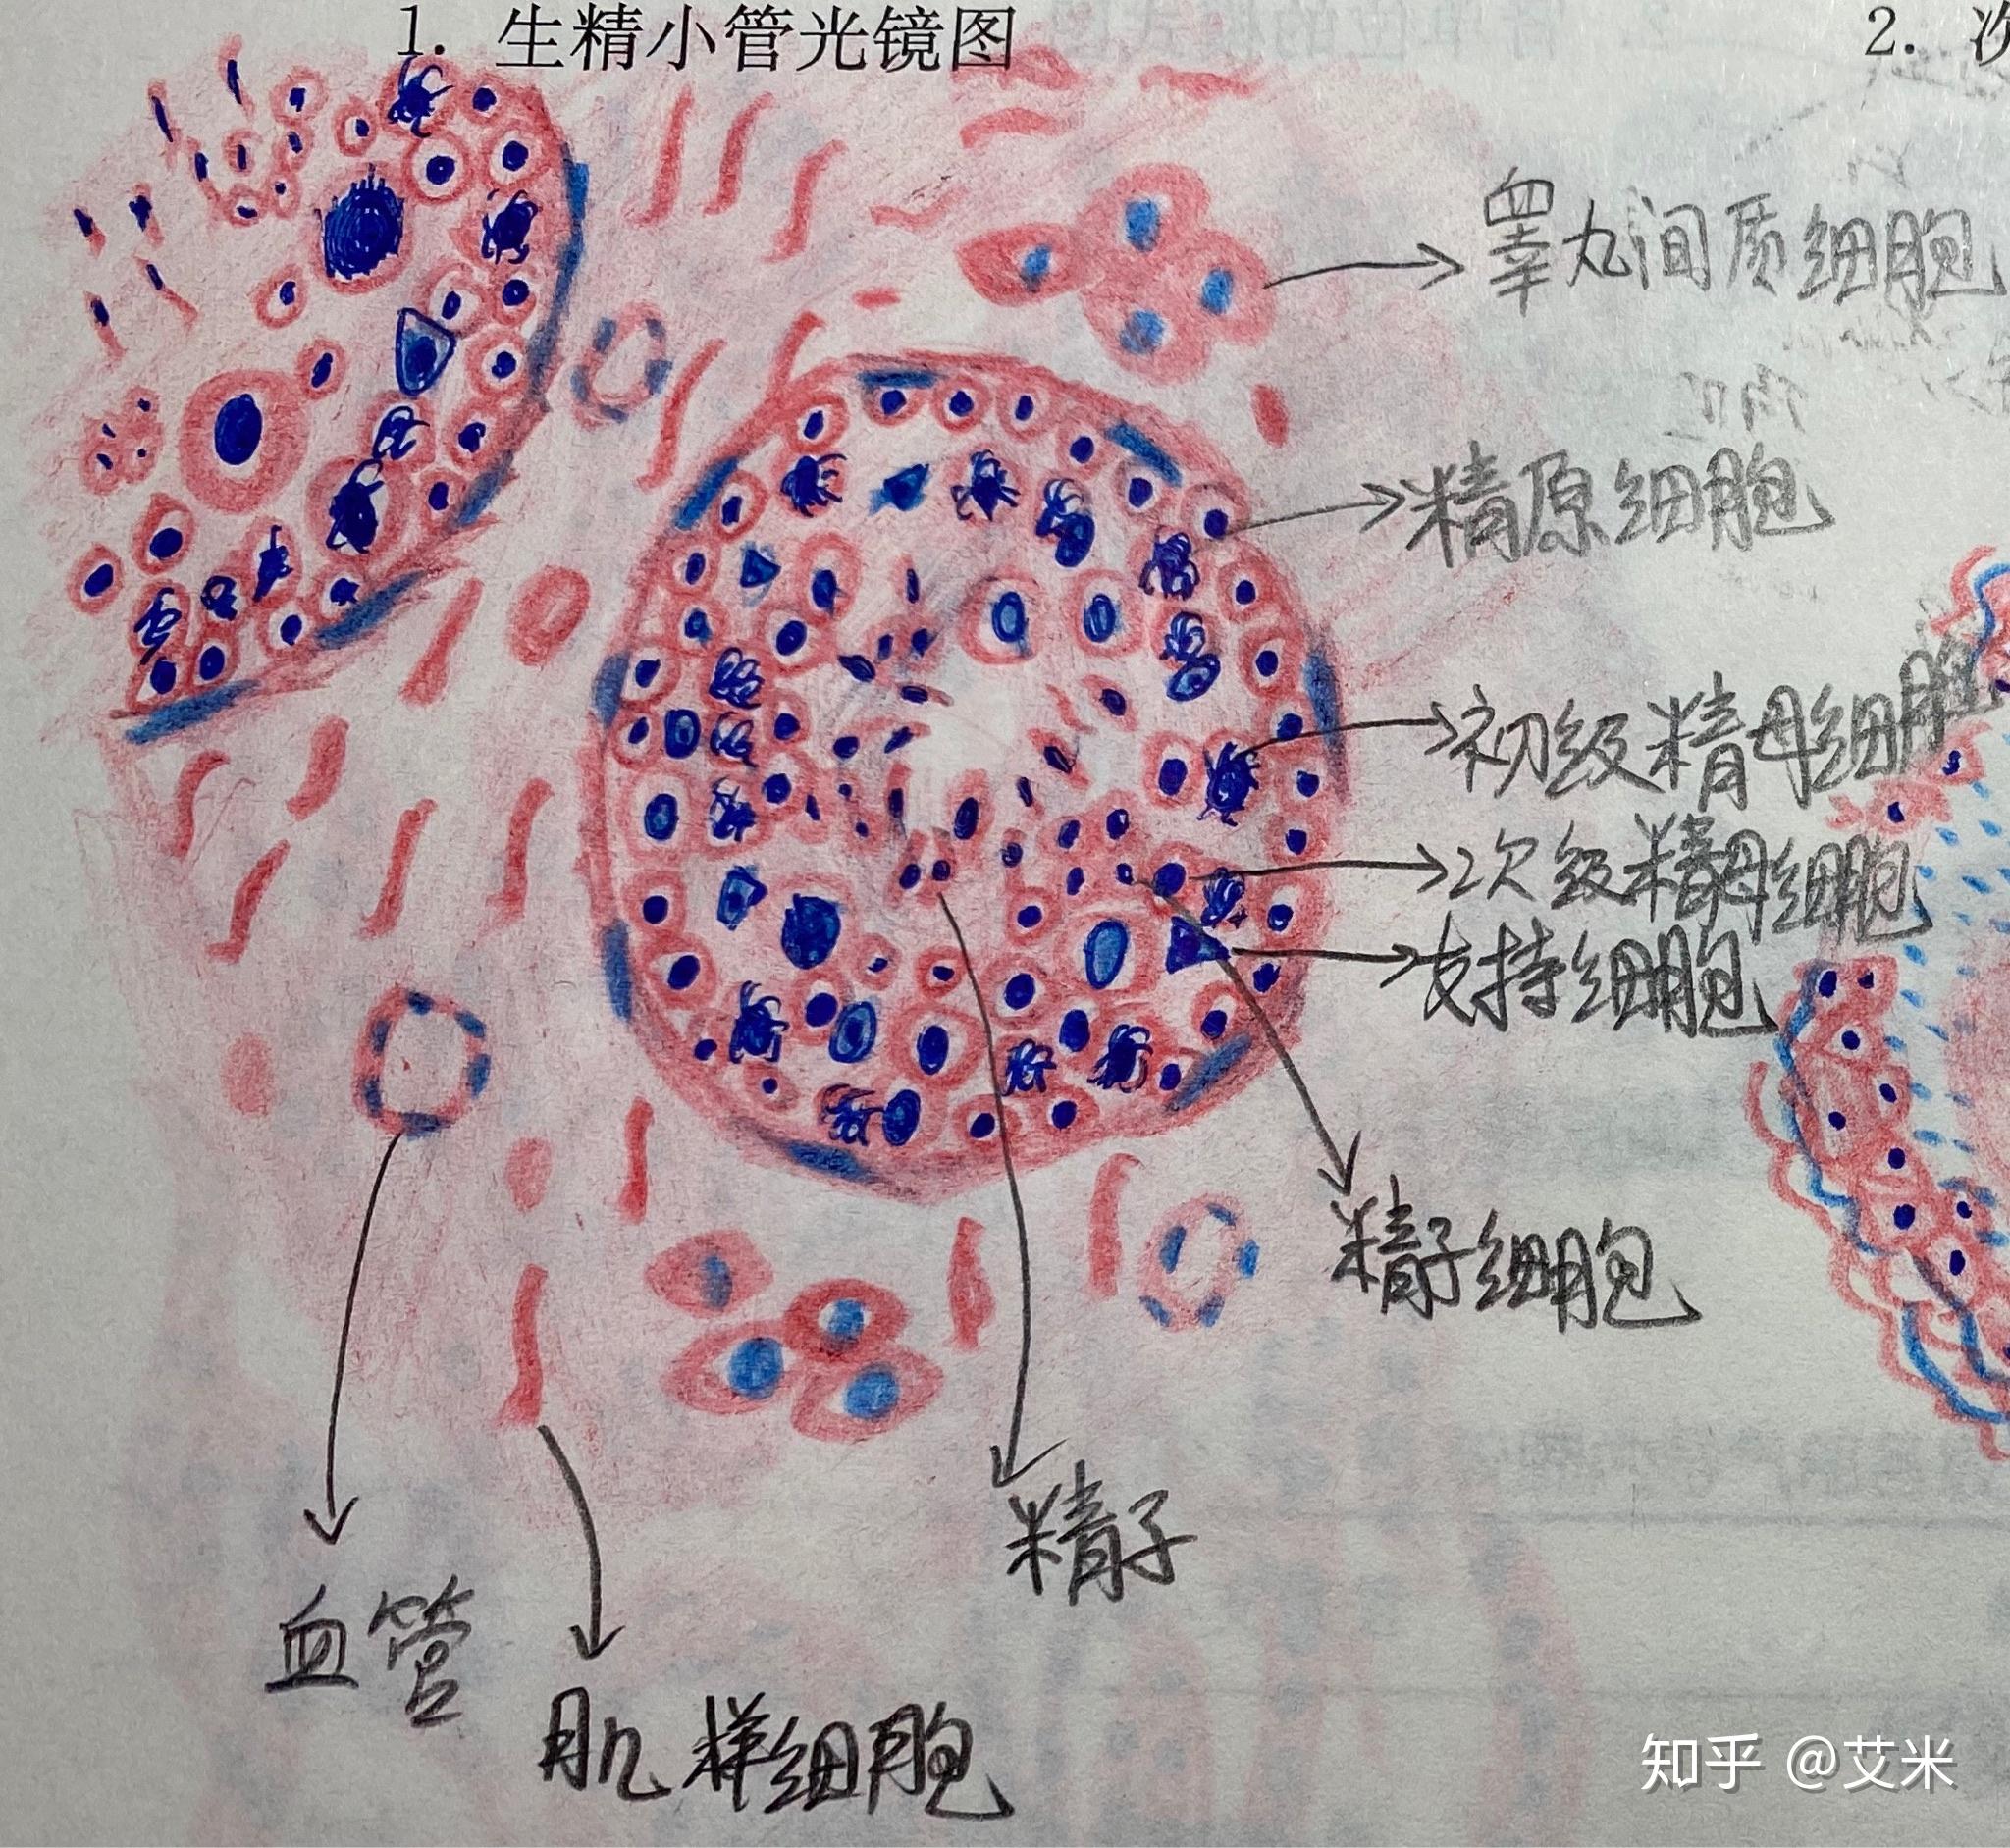 1. 生精小管光镜图
2. 次
睾丸间质细胞
精原细胞
初级精母细胞
次级精母细胞
支持细胞
精子细胞
精子
血管
肌样细胞
知乎 @艾米